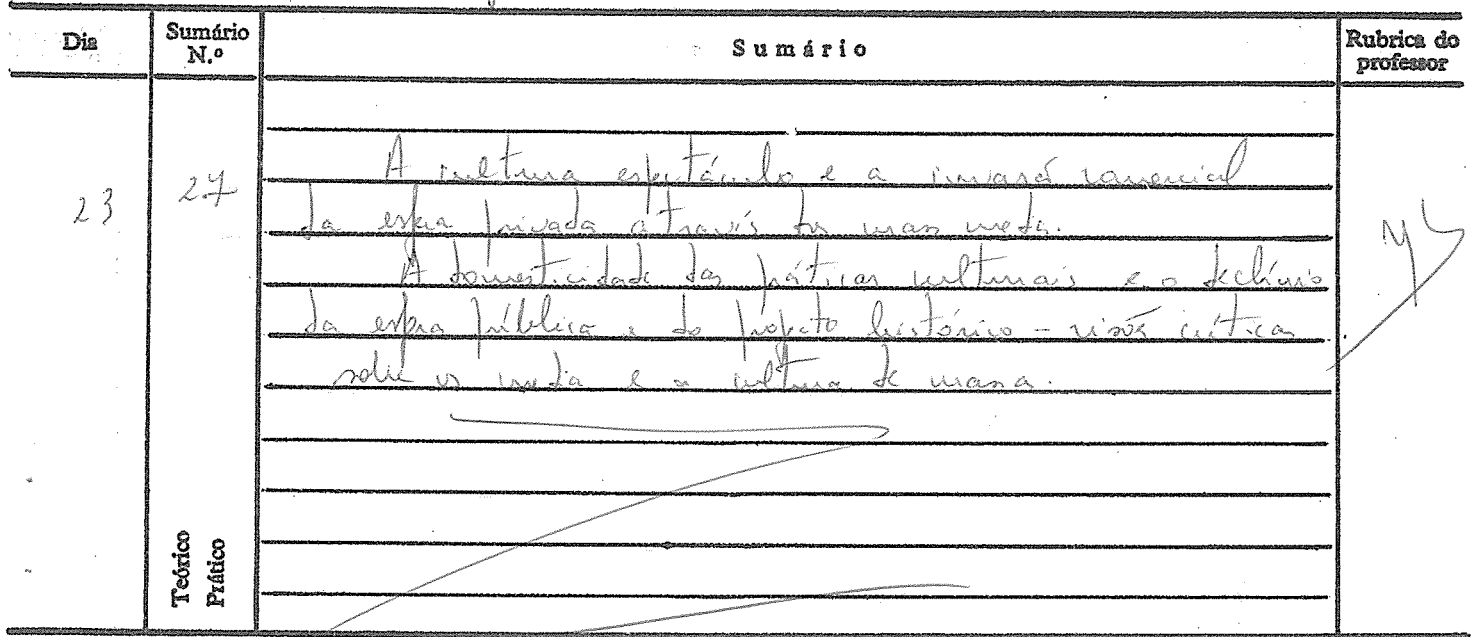 Dia
Sumário N.º
Sumário
Rubrica do professor
23
27
A cultura espectáculo e a invasão comercial
da esfera privada através dos mass media.
A domesticidade das práticas culturais e o declínio
da esfera pública e do projecto histórico – visões críticas
sobre os media e a cultura de massa.
Teórico
Prático